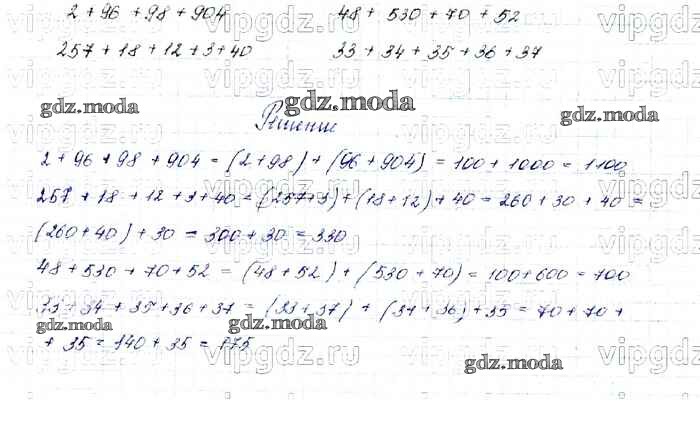 2+96+98+904 48+530+70+52
257+18+12+3+40 33+34+35+36+37
Решение
2+96+98+904=(2+98)+(96+904)=100+1000=1100
257+18+12+3+40=(257+3)+(18+12)+40=260+30+40=
(260+40)+30=300+30=330
48+530+70+52=(48+52)+(530+70)=100+600=700
33+34+35+36+37=(33+37)+(34+36)+35=70+70+
+35=140+35=175
vipgdz.ru
gdz.moda